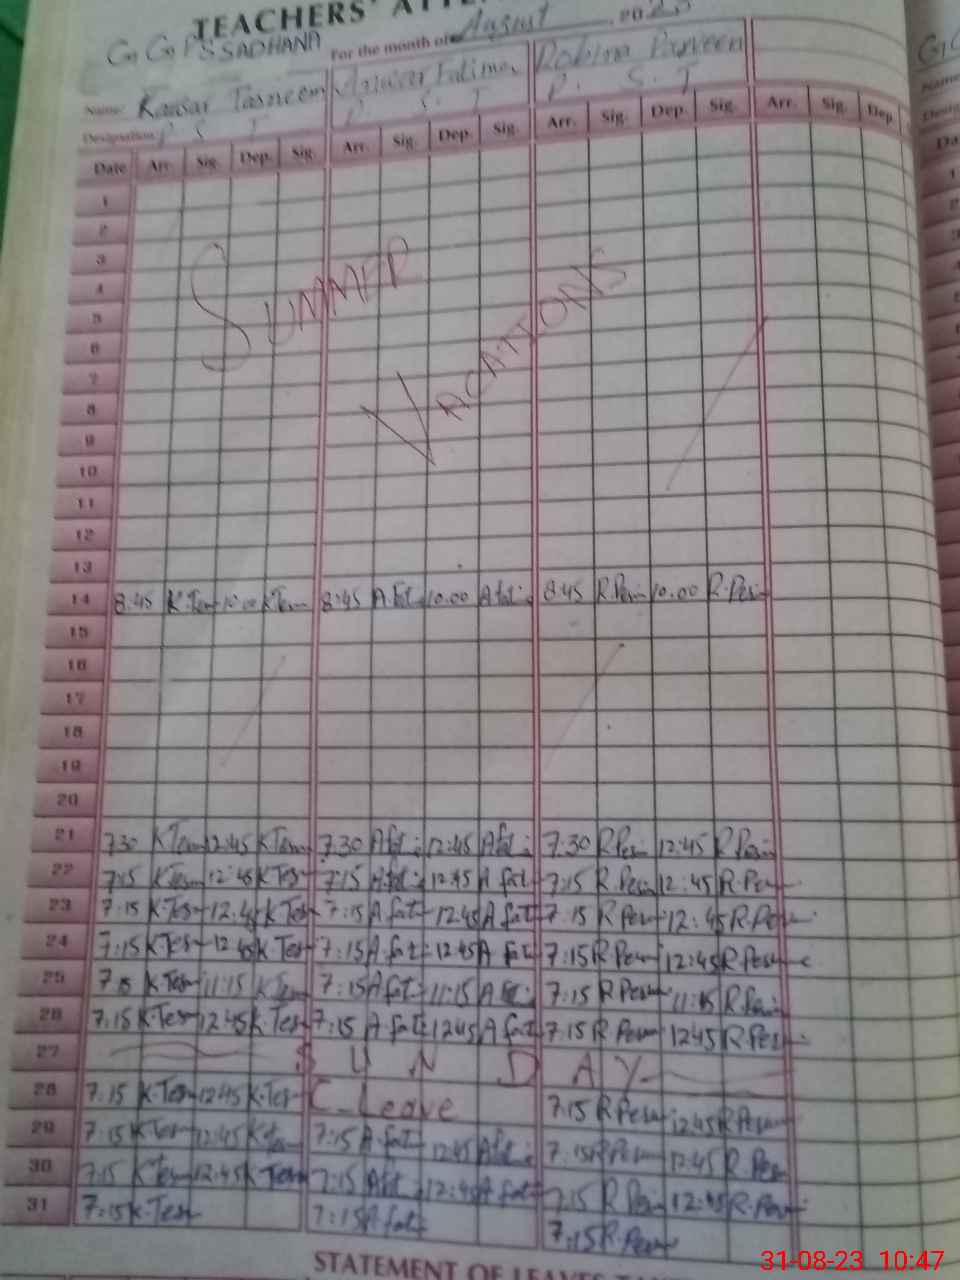 TEACHERS'
G. G. P S. SADHANA For the month of August 2023
Name Kausar Tasneem Azwar Fatima Robina Parveen
Designation P S T P. S. T P. S. T
Date Arr. Sig. Dep. Sig. Arr. Sig. Dep. Sig. Arr. Sig. Dep. Sig. Arr. Sig. Dep.
1
2
3
SUMMER
4
5
VACATIONS
6
7
8
9
10
11
12
13
14 8:45 K.Tas 10:00 K.Tas 8:45 A.fat 10.00 A.fat 8:45 R.Per 10.00 R.Per
15
16
17
18
19
20
21 7.30 K.Tas 12:45 K.Tas 7.30 A.fat 12:45 A.fat 7.30 R.Per 12:45 R.Per
22 7:15 K.Tas 12:45 K.Tas 7:15 A.fat 12.45 A.fat 7:15 R.Per 12:45 R.Per
23 7:15 K.Tas 12:45 K.Tas 7:15 A.fat 12.45 A.fat 7:15 R.Per 12:45 R.Per
24 7:15 K.Tas 12:45 K.Tas 7:15 A.fat 12:45 A.fat 7:15 R.Per 12:45 R.Per
25 7:15 K.Tas 11:15 K.Tas 7:15 A.fat 11:15 A.fat 7:15 R.Per 11:15 R.Per
26 7.15 K.Tas 12:45 K.Tas 7:15 A.fat 12:45 A.fat 7:15 R.Per 12:45 R.Per
27 SUNDAY
28 7.15 K.Tas 12:45 K.Tas C_Leave 7.15 R.Per 12:45 R.Per
29 7:15 K.Tas 12:45 K.Tas 7:15 A.fat 12:45 A.fat 7:15 R.Per 12:45 R.Per
30 7:15 K.Tas 12:45 K.Tas 7:15 A.fat 12:45 A.fat 7:15 R.Per 12:45 R.Per
31 7:15 K.Tas 7:15 A.fat 7:15 R.Per
STATEMENT OF LEAVES
31-08-23 10:47